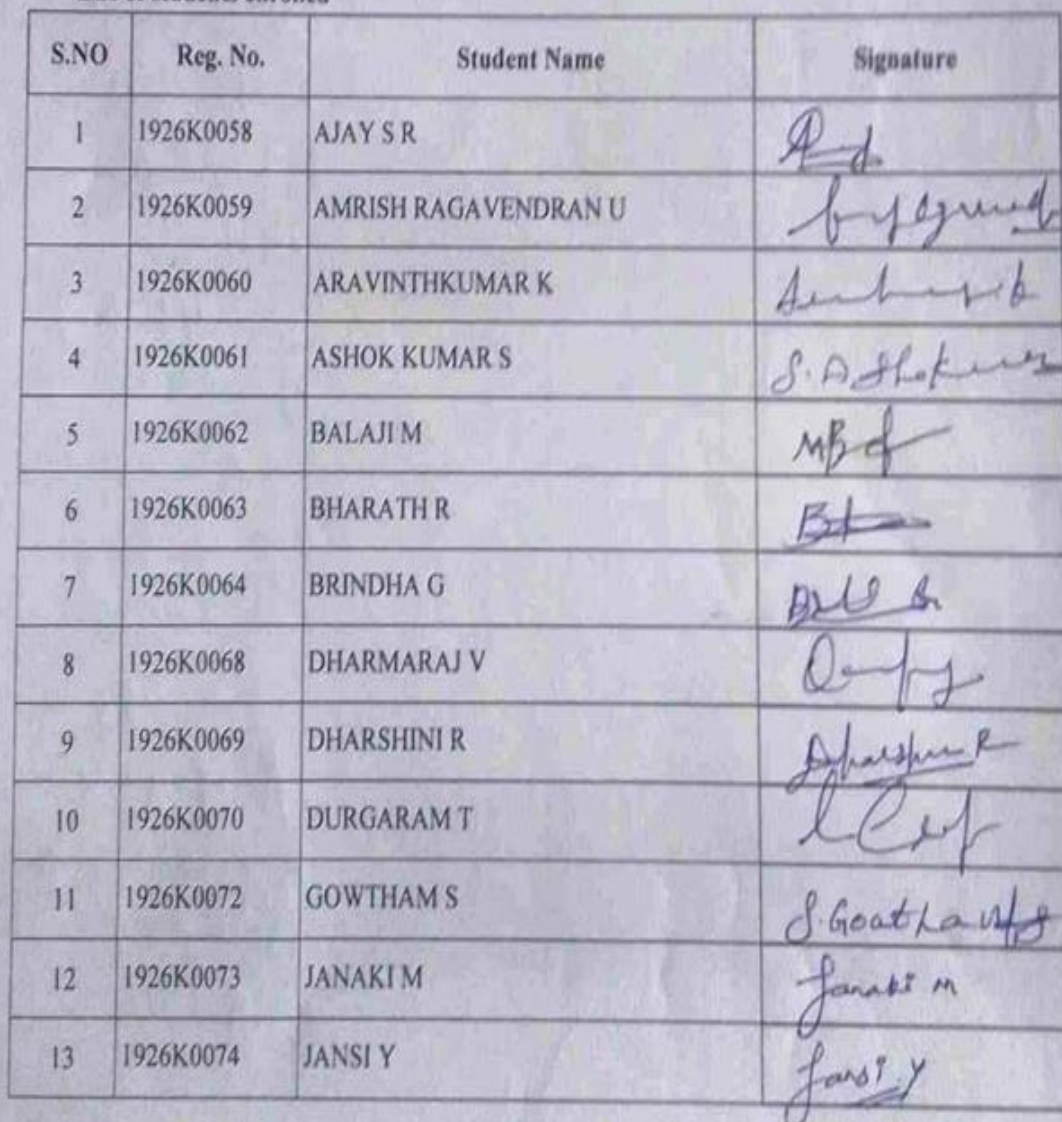 S.NO Reg. No. Student Name Signature
1 1926K0058 AJAY S R
2 1926K0059 AMRISH RAGAVENDRAN U
3 1926K0060 ARAVINTHKUMAR K
4 1926K0061 ASHOK KUMAR S
5 1926K0062 BALAJI M
6 1926K0063 BHARATH R
7 1926K0064 BRINDHA G
8 1926K0068 DHARMARAJ V
9 1926K0069 DHARSHINI R
10 1926K0070 DURGARAM T
11 1926K0072 GOWTHAM S
12 1926K0073 JANAKI M Janaki M
13 1926K0074 JANSI Y Jansi Y